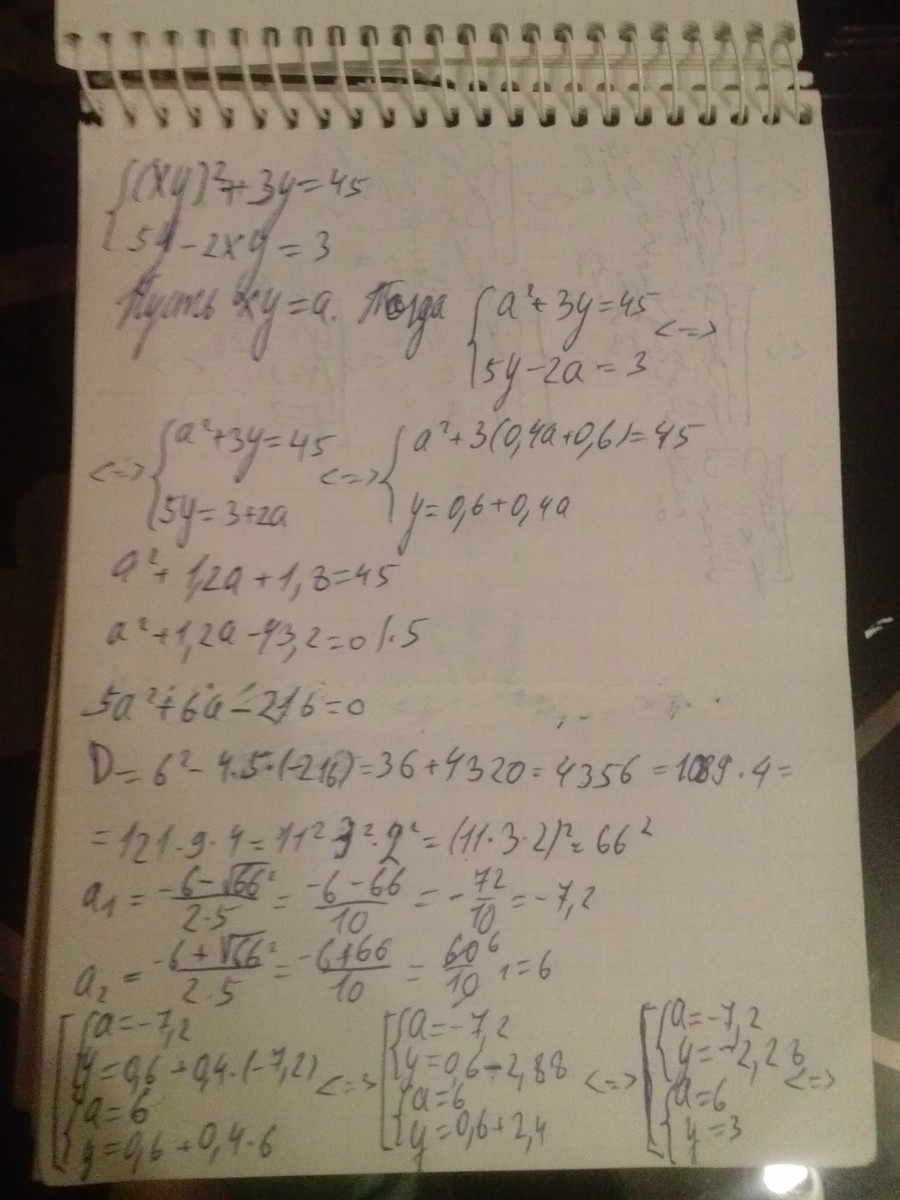 {(xy)²+3y=45
5y-2xy=3
Пусть xy=a. Тогда {a²+3y=45 <=>
5y-2a=3
<=> {a²+3y=45 <=> {a²+3(0,4a+0,6)=45
5y=3+2a y=0,6+0,4a
a²+1,2a+1,8=45
a²+1,2a-43,2=0 |·5
5a²+6a-216=0
D=6²-4·5·(-216)=36+4320=4356=1089·4=
=121·9·4=11²·3²·2²=(11·3·2)²=66²
a₁=(-6-√66²)/(2·5)=(-6-66)/10=-72/10=-7,2
a₂=(-6+√66²)/(2·5)=(-6+66)/10=60⁶/10₁=6
[{a=-7,2 [{a=-7,2 [{a=-7,2
y=0,6+0,4·(-7,2) <=> y=0,6-2,88 <=> y=-2,28 <=>
{a=6 {a=6 {a=6
y=0,6+0,4·6 y=0,6+2,4 y=3